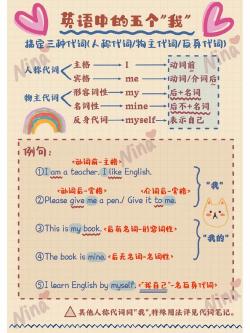 英语中的五个"我"
搞定三种代词(人称代词/物主代词/反身代词)
人称代词 主格 I 动词前
宾格 me 动词/介词后
物主代词 形容词性 my 后+名词
名词性 mine 后不+名词
反身代词 myself 表示自己
例句：
<动词前-主格>
①I am a teacher. I like English.
<动词后-宾格> <介词后-宾格>
②Please give me a pen./ Give it to me.
"我"
③This is my book. <后有名词-形容词性>
"我的"
④The book is mine. <后无名词-名词性>
⑤I learn English by myself. <"我自己"-名反身代词>
其他人称代词同"我",特殊用法详见代词笔记。
Nina
Nina
Nina
Nina
Nina